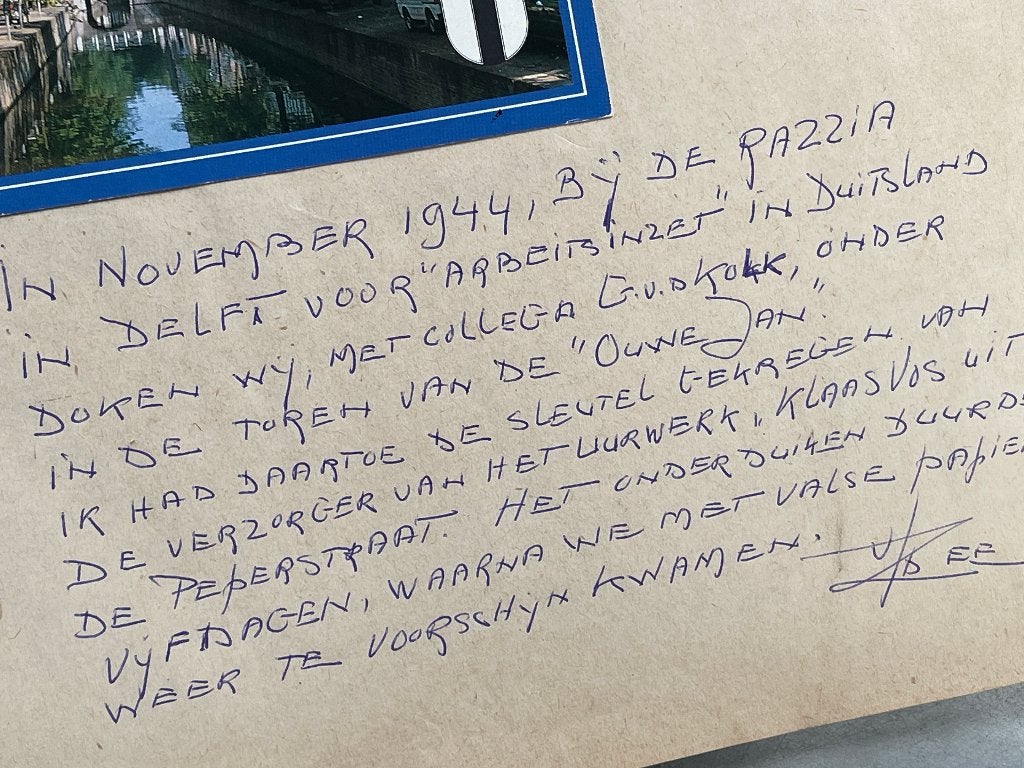 IN NOVEMBER 1944, BIJ DE RAZZIA
IN DELFT VOOR "ARBEITSINZET" IN DUITSLAND
DOKEN WIJ, MET COLLEGA G.v.d KOLK, ONDER
IN DE TOREN VAN DE "OUWE JAN".
IK HAD DAARTOE DE SLEUTEL GEKREGEN VAN
DE VERZORGER VAN HET UURWERK, KLAAS VOS UIT
DE PEPERSTRAAT. HET ONDERDUIKEN DUURDE
VIJF DAGEN, WAARNA WE MET VALSE PAPIE
WEER TE VOORSCHIJN KWAMEN.